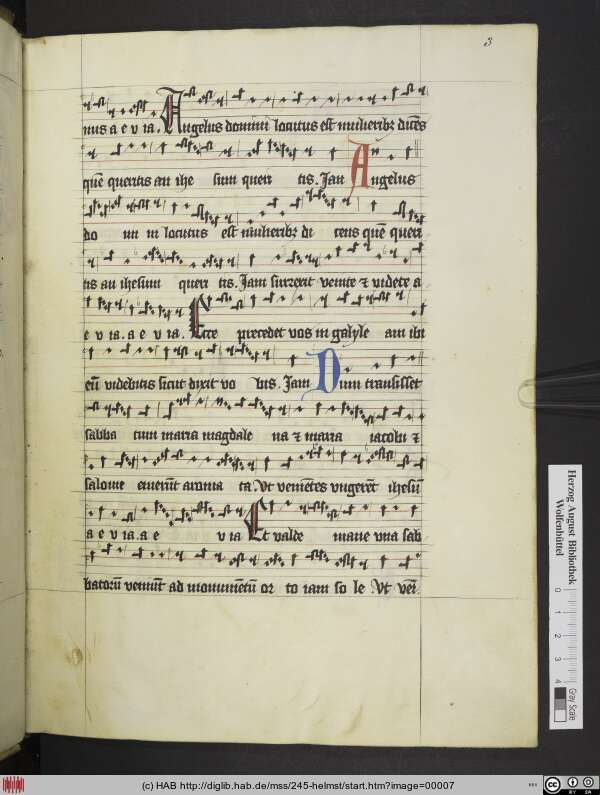 3
nus a e v ia. Angelus domini locutus est mulieribz dicēs
quē queritis an ihe sum queri tis. Jam Angelus
do mi ni locutus est mulieribz di cens quē queri
tis an ihesum queri tis. Jam surrexit venite ⁊ videte a
e v ia. a e v ia. Ecce precedet vos in galyle am ibi
eū videbitis sicut dixit vo bis. Jam Dum transisset
sabba tum maria magdale na ⁊ maria iacobi ⁊
salome emerūt aroma ta. Vt veniētes vngerēt ihesū
a e v ia. a e v ia Et valde mane vna sab
batorū veniūt ad monumētū or to iam so le Vt veni
Herzog August Bibliothek
Wolfenbüttel
0 1 2 3 4
Gray Scale
(c) HAB http://diglib.hab.de/mss/245-helmst/start.htm?image=00007
cc BY SA